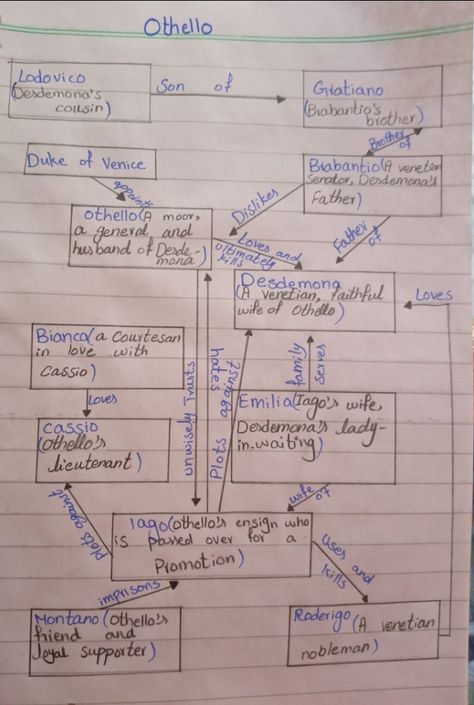 Othello
Lodovico
(Desdemona's
cousin)
Son of
Gratiano
(Brabantio's
brother)
Brother
of
Duke of Venice
appoints
Brabantio(A venetian
Senator, Desdemona's
Father)
Othello(A moor,
a general and
husband of Desde-
mona)
Dislikes
Loves and
ultimately
kills
Father
of
Desdemona
(A venetian, faithful
wife of Othello)
Loves
Bianca(a Courtesan
in love with
Cassio)
Loves
unwisely Trusts
hates
Plots against
family
serves
Emilia(Iago's wife,
Desdemona's lady-
in-waiting)
Cassio
(Othello's
lieutenant)
wife of
plots against
Iago(Othello's ensign who
is passed over for a
Promotion)
uses and
kills
imprisons
Montano(Othello's
friend and
loyal supporter)
Roderigo(A venetian
nobleman)